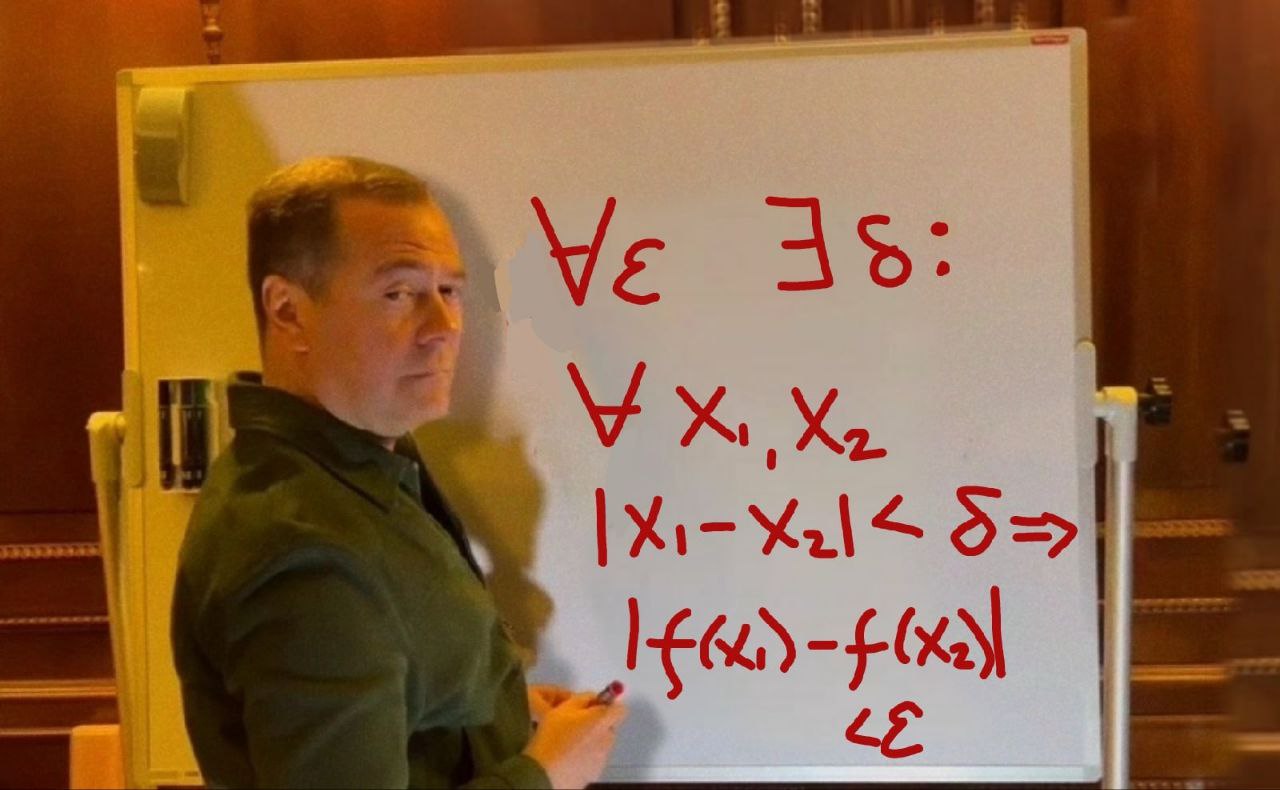 ∀ε ∃δ:
∀ x₁, x₂
|x₁-x₂| < δ ⇒
|f(x₁)-f(x₂)|
<ε